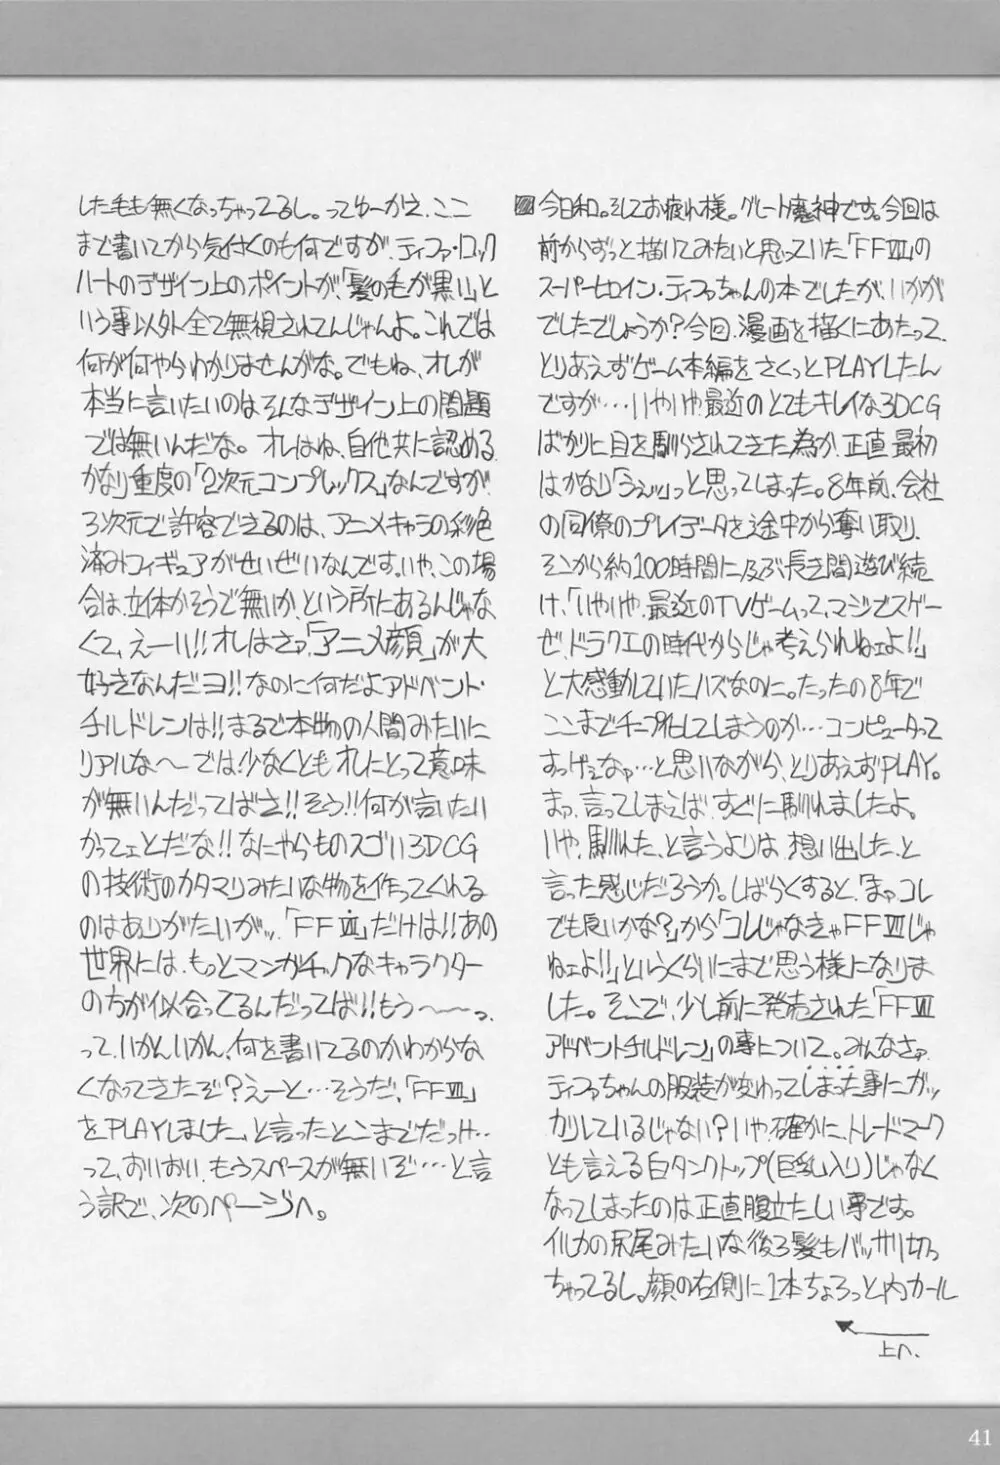 今日和。そしてお疲れ様。グレート魔神です。今回は
前からずっと描いてみたいと思っていた「FFⅦ」の
スーパーヒロイン・ティファちゃんの本でしたが、いかが
でしたでしょうか?今回、漫画を描くにあたって、
とりあえずゲーム本編をさくっとPLAYしたん
ですが…いやいや、最近のとてもキレイな3DCG
ばかりに目を馴らされてきた為か、正直、最初
はかなり「うぇッ」っと思ってしまった。8年前、会社
の同僚のプレイデータを途中から奪い取り、
そこから約100時間に及ぶ長き間遊び続
け、「いやいや、最近のTVゲームって、マジでスゲー
ぜ、ドラクエの時代からじゃ考えられねェよ!!」
と大感動していたハズなのに。たったの8年で
ここまでチープ化してしまうのか…コンピュータって
すっげぇなァ…と思いながら、とりあえずPLAY。
まァ、言ってしまえば、すぐに馴れましたよ。
いや、馴れた、と言うよりは、想い出した、と
言った感じだろうか。しばらくすると、「まァ、コレ
でも良いかな?」から「コレじゃなきゃFFⅦじゃ
ねェよ!!」というくらいにまで思う様になりま
した。そこで、少し前に発売された「FFⅦ
アドベントチルドレン」の事について。みんなさァ、
ティファちゃんの服装が変わってしまった事にガッ
カリしているじゃない?いや、確かに、トレードマーク
とも言える白タンクトップ(巨乳入り)じゃなく
なってしまったのは正直腹立たしい事です。
イルカの尻尾みたいな後ろ髪もバッサリ切っ
ちゃってるし。顔の右側に1本ちょろっと内カール
上へ.
した毛も無くなっちゃってるし。ってゆーかえ、ここ
まで書いてから気付くのも何ですが、ティファ・ロック
ハートのデザイン上のポイントが、「髪の毛が黒い」と
いう事以外全て無視されてんじゃんよ。これでは
何が何やらわかりませんがな。でもね、オレが
本当に言いたいのはそんなデザイン上の問題
では無いんだな。オレはね、自他共に認める、
かなり重度の「2次元コンプレックス」なんですが、
3次元で許容できるのは、アニメキャラの彩色
済みフィギュアがせいぜいなんです。いや、この場
合は、立体かそうで無いか、という所にあるんじゃな
くて、えーい!!オレはさァ、「アニメ顔」が大
好きなんだヨ!!なのに何だよアドベント・
チルドレンは!!まるで本物の人間みたいに
リアルな〜では、少なくともオレにとって意味
が無いんだってばさ!!そう!!何が言いたい
かってェとだな!!なにやらものスゴい3DCG
の技術のカタマリみたいな物を作ってくれる
のはありがたいがッ、「FFⅦ」だけは!!あの
世界には、もっとマンガチックなキャラクター
の方が似合ってるんだってば!!もう〜〜っ、
って、いかんいかん、何を書いてるのかわからな
くなってきたぞ?えーと…そうだ、「FFⅦ」
をPLAYしました、と言ったとこまでだっけ…
って、おいおい、もうスペースが無いぞ…と言
う訳で、次のページへ。
41